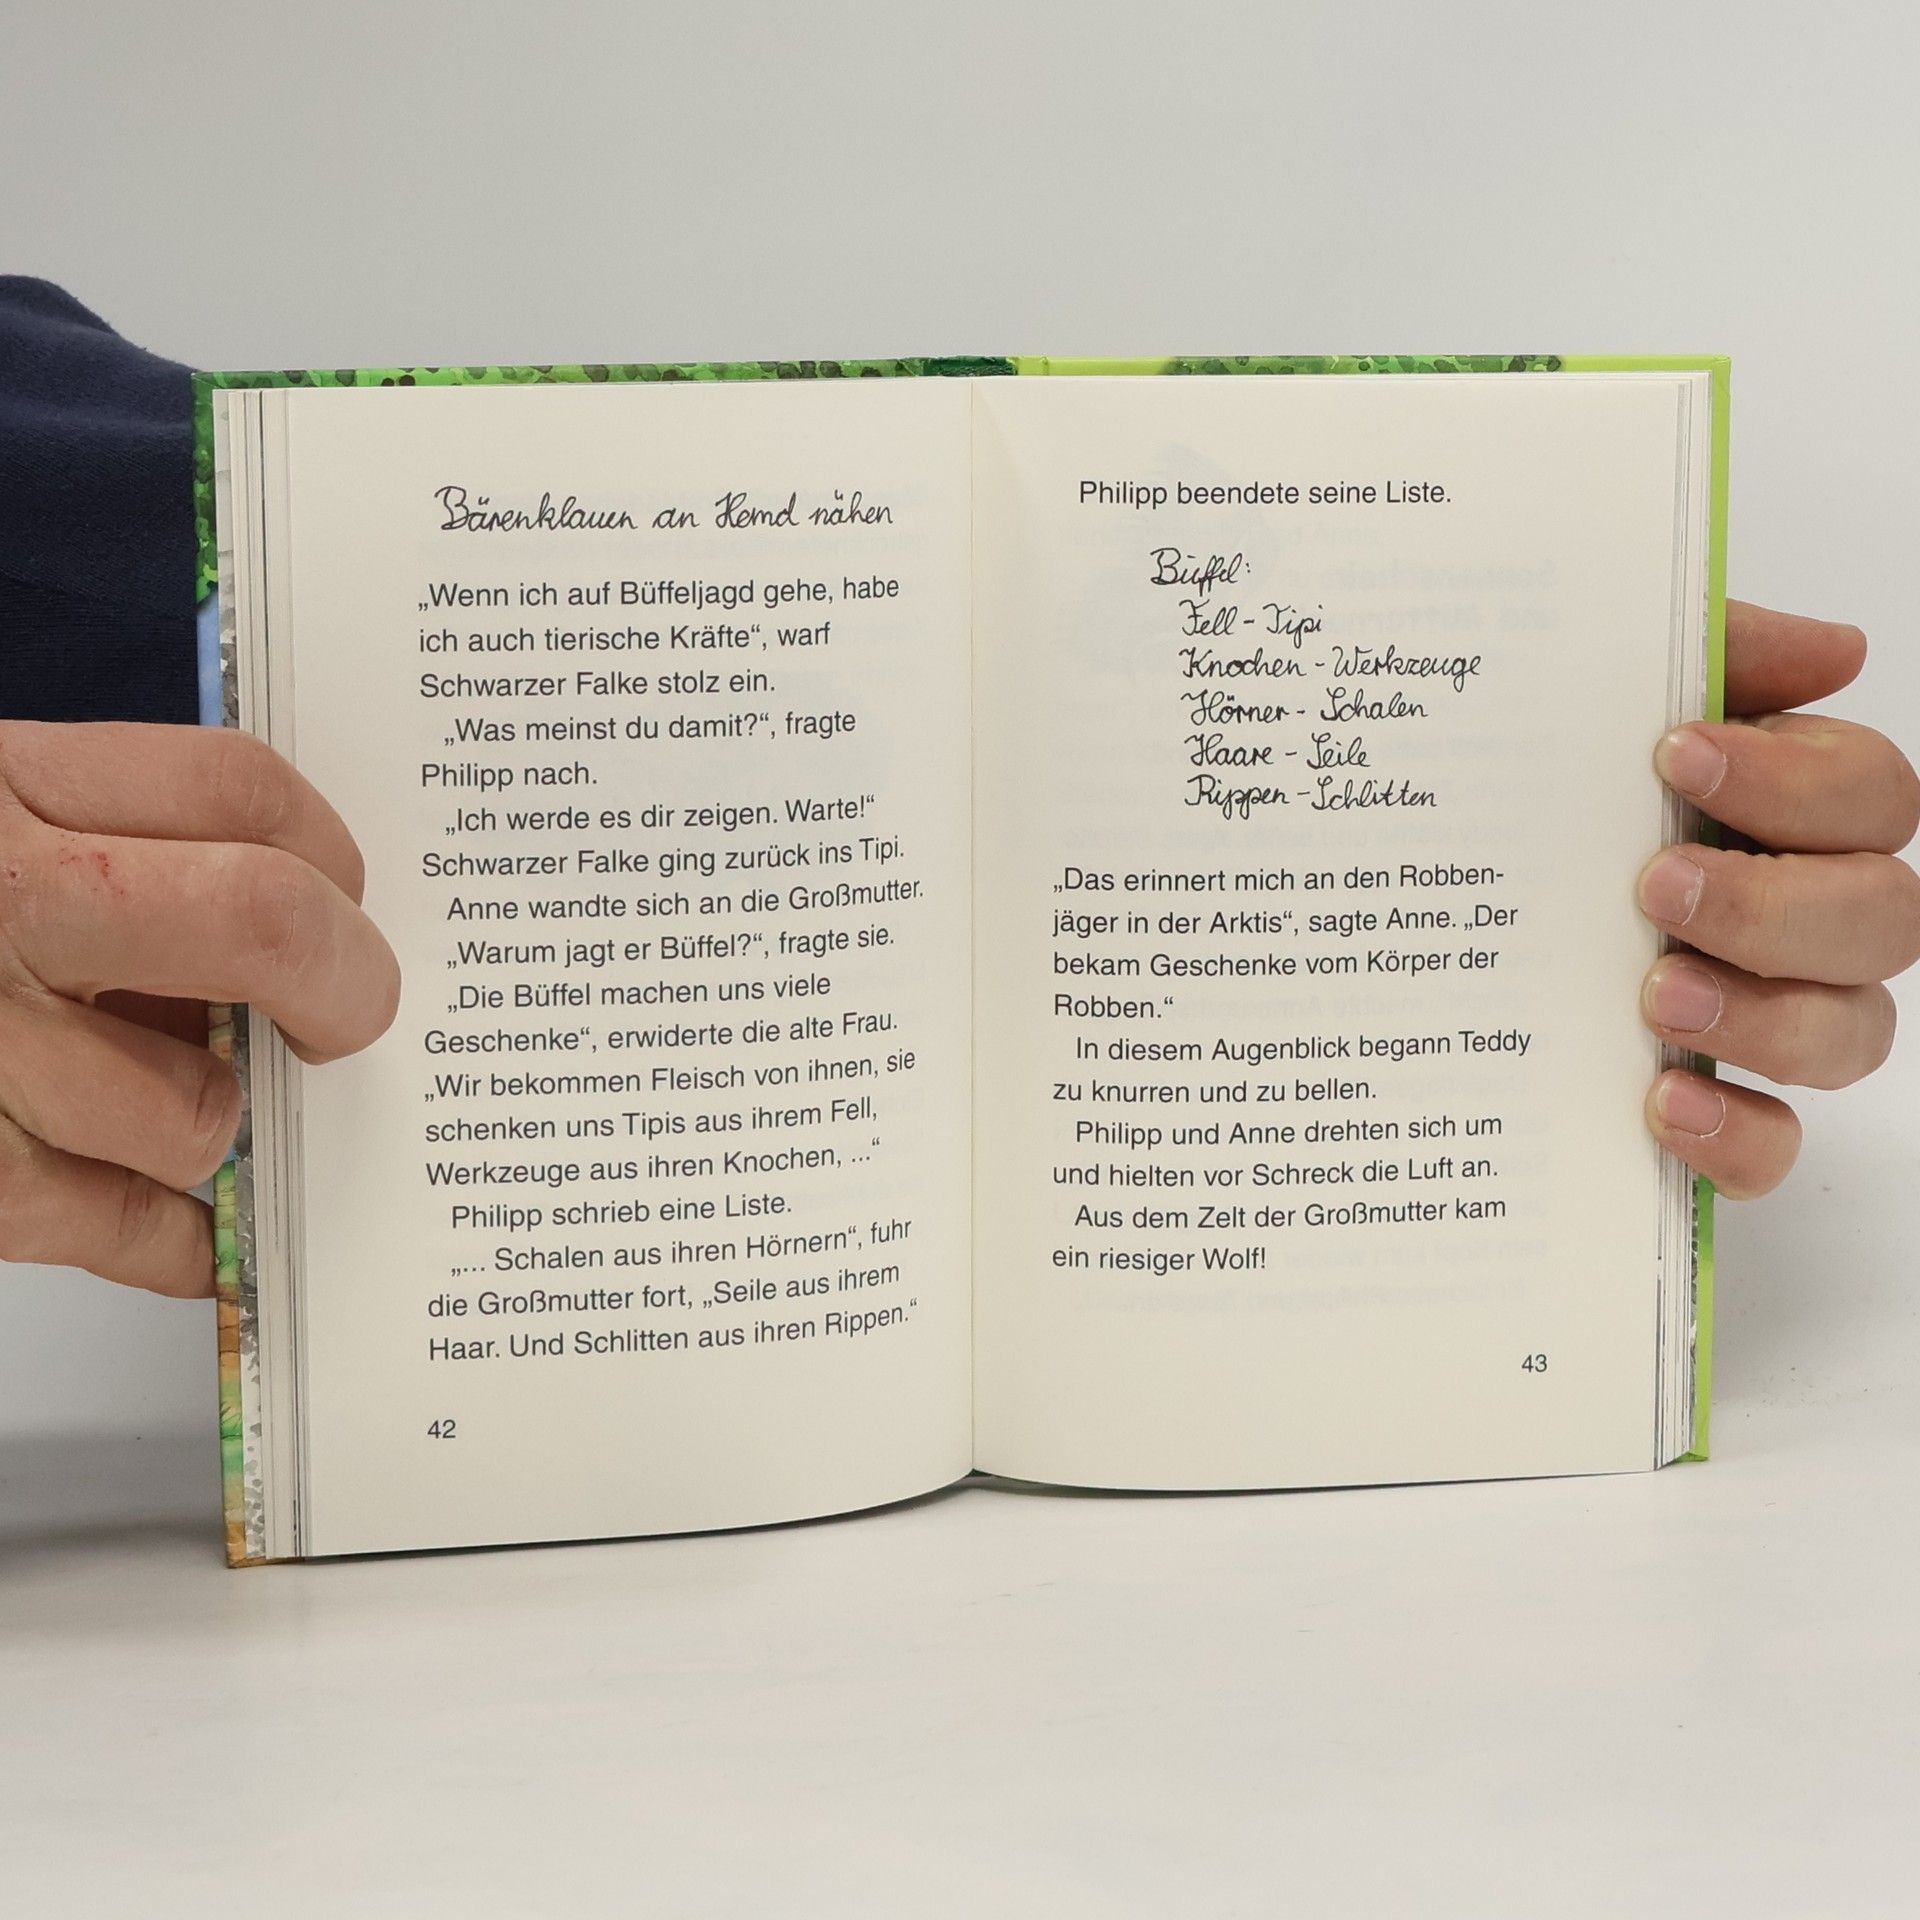 Bärenklauen an Hemd nähen
„Wenn ich auf Büffeljagd gehe, habe
ich auch tierische Kräfte“, warf
Schwarzer Falke stolz ein.
„Was meinst du damit?“, fragte
Philipp nach.
„Ich werde es dir zeigen. Warte!“
Schwarzer Falke ging zurück ins Tipi.
Anne wandte sich an die Großmutter.
„Warum jagt er Büffel?“, fragte sie.
„Die Büffel machen uns viele
Geschenke“, erwiderte die alte Frau.
„Wir bekommen Fleisch von ihnen, sie
schenken uns Tipis aus ihrem Fell,
Werkzeuge aus ihren Knochen, ...“
Philipp schrieb eine Liste.
„... Schalen aus ihren Hörnern“, fuhr
die Großmutter fort, „Seile aus ihrem
Haar. Und Schlitten aus ihren Rippen.“
42
Philipp beendete seine Liste.
Büffel:
Fell - Tipi
Knochen - Werkzeuge
Hörner - Schalen
Haare - Seile
Rippen - Schlitten
„Das erinnert mich an den Robben-
jäger in der Arktis“, sagte Anne. „Der
bekam Geschenke vom Körper der
Robben.“
In diesem Augenblick begann Teddy
zu knurren und zu bellen.
Philipp und Anne drehten sich um
und hielten vor Schreck die Luft an.
Aus dem Zelt der Großmutter kam
ein riesiger Wolf!
43